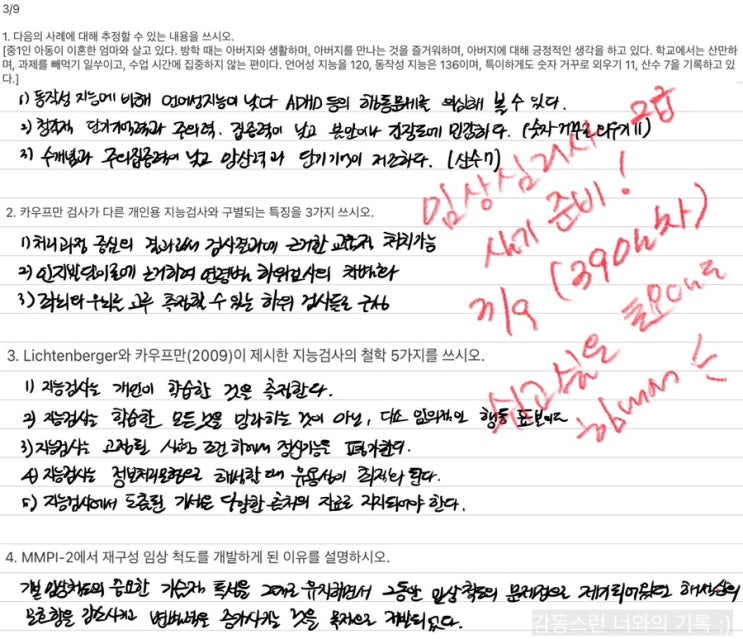 3/9
1. 다음의 사례에 대해 추정할 수 있는 내용을 쓰시오.
[중1인 아동이 이혼한 엄마와 살고 있다. 방학 때는 아버지와 생활하며, 아버지를 만나는 것을 즐거워하며, 아버지에 대해 긍정적인 생각을 하고 있다. 학교에서는 산만하
며, 과제를 빼먹기 일쑤이고, 수업 시간에 집중하지 않는 편이다. 언어성 지능을 120, 동작성 지능은 136이며, 특이하게도 숫자 거꾸로 외우기 11, 산수 7을 기록하고 있
다.]
1) 동작성 지능에 비해 언어성지능이 낮다 ADHD 등의 행동문제를 의심해 볼 수 있다.
2) 청각적 단기기억력과 주의력, 집중력이 낮고 불안이나 긴장도에 민감하다. (숫자 거꾸로 외우기 11)
3) 수개념과 주의집중력이 낮고 암산력과 단기기억이 저조하다. (산수 7)
임상심리사 2급
실기 준비!
3/9 (390일차)
심고실은 토요에도
힘내서
2. 카우프만 검사가 다른 개인용 지능검사와 구별되는 특징을 3가지 쓰시오.
1) 처리과정 중심의 결과로써 검사결과에 근거한 교육적 처치가능
2) 인지발달이론에 근거하여 연령별 하위검사의 차별화
3) 좌뇌와 우뇌를 고루 측정할 수 있는 하위 검사들로 구성
3. Lichtenberger와 카우프만(2009)이 제시한 지능검사의 철학 5가지를 쓰시오.
1) 지능검사는 개인이 학습한 것을 측정한다.
2) 지능검사는 학습한 모든것을 망라하는 것이 아닌, 다소 임의적인 행동 표본이다
3) 지능검사는 고정된 시험 조건 하에서 정신기능을 평가한다.
4) 지능검사는 정보처리모형으로 해석할 때 유용성이 최적화 된다.
5) 지능검사에서 도출된 가설은 다양한 출처의 자료로 지지되어야 한다.
4. MMPI-2에서 재구성 임상 척도를 개발하게 된 이유를 설명하시오.
개별 임상척도의 중요한 기술적 특성을 그대로 유지하면서 그동안 임상척도의 문제점으로 제기되어왔던 해석상의
모호함을 감소시키고 변별력을 증가시키는 것을 목적으로 개발되었다.
감동스런 너와의 기록 :)